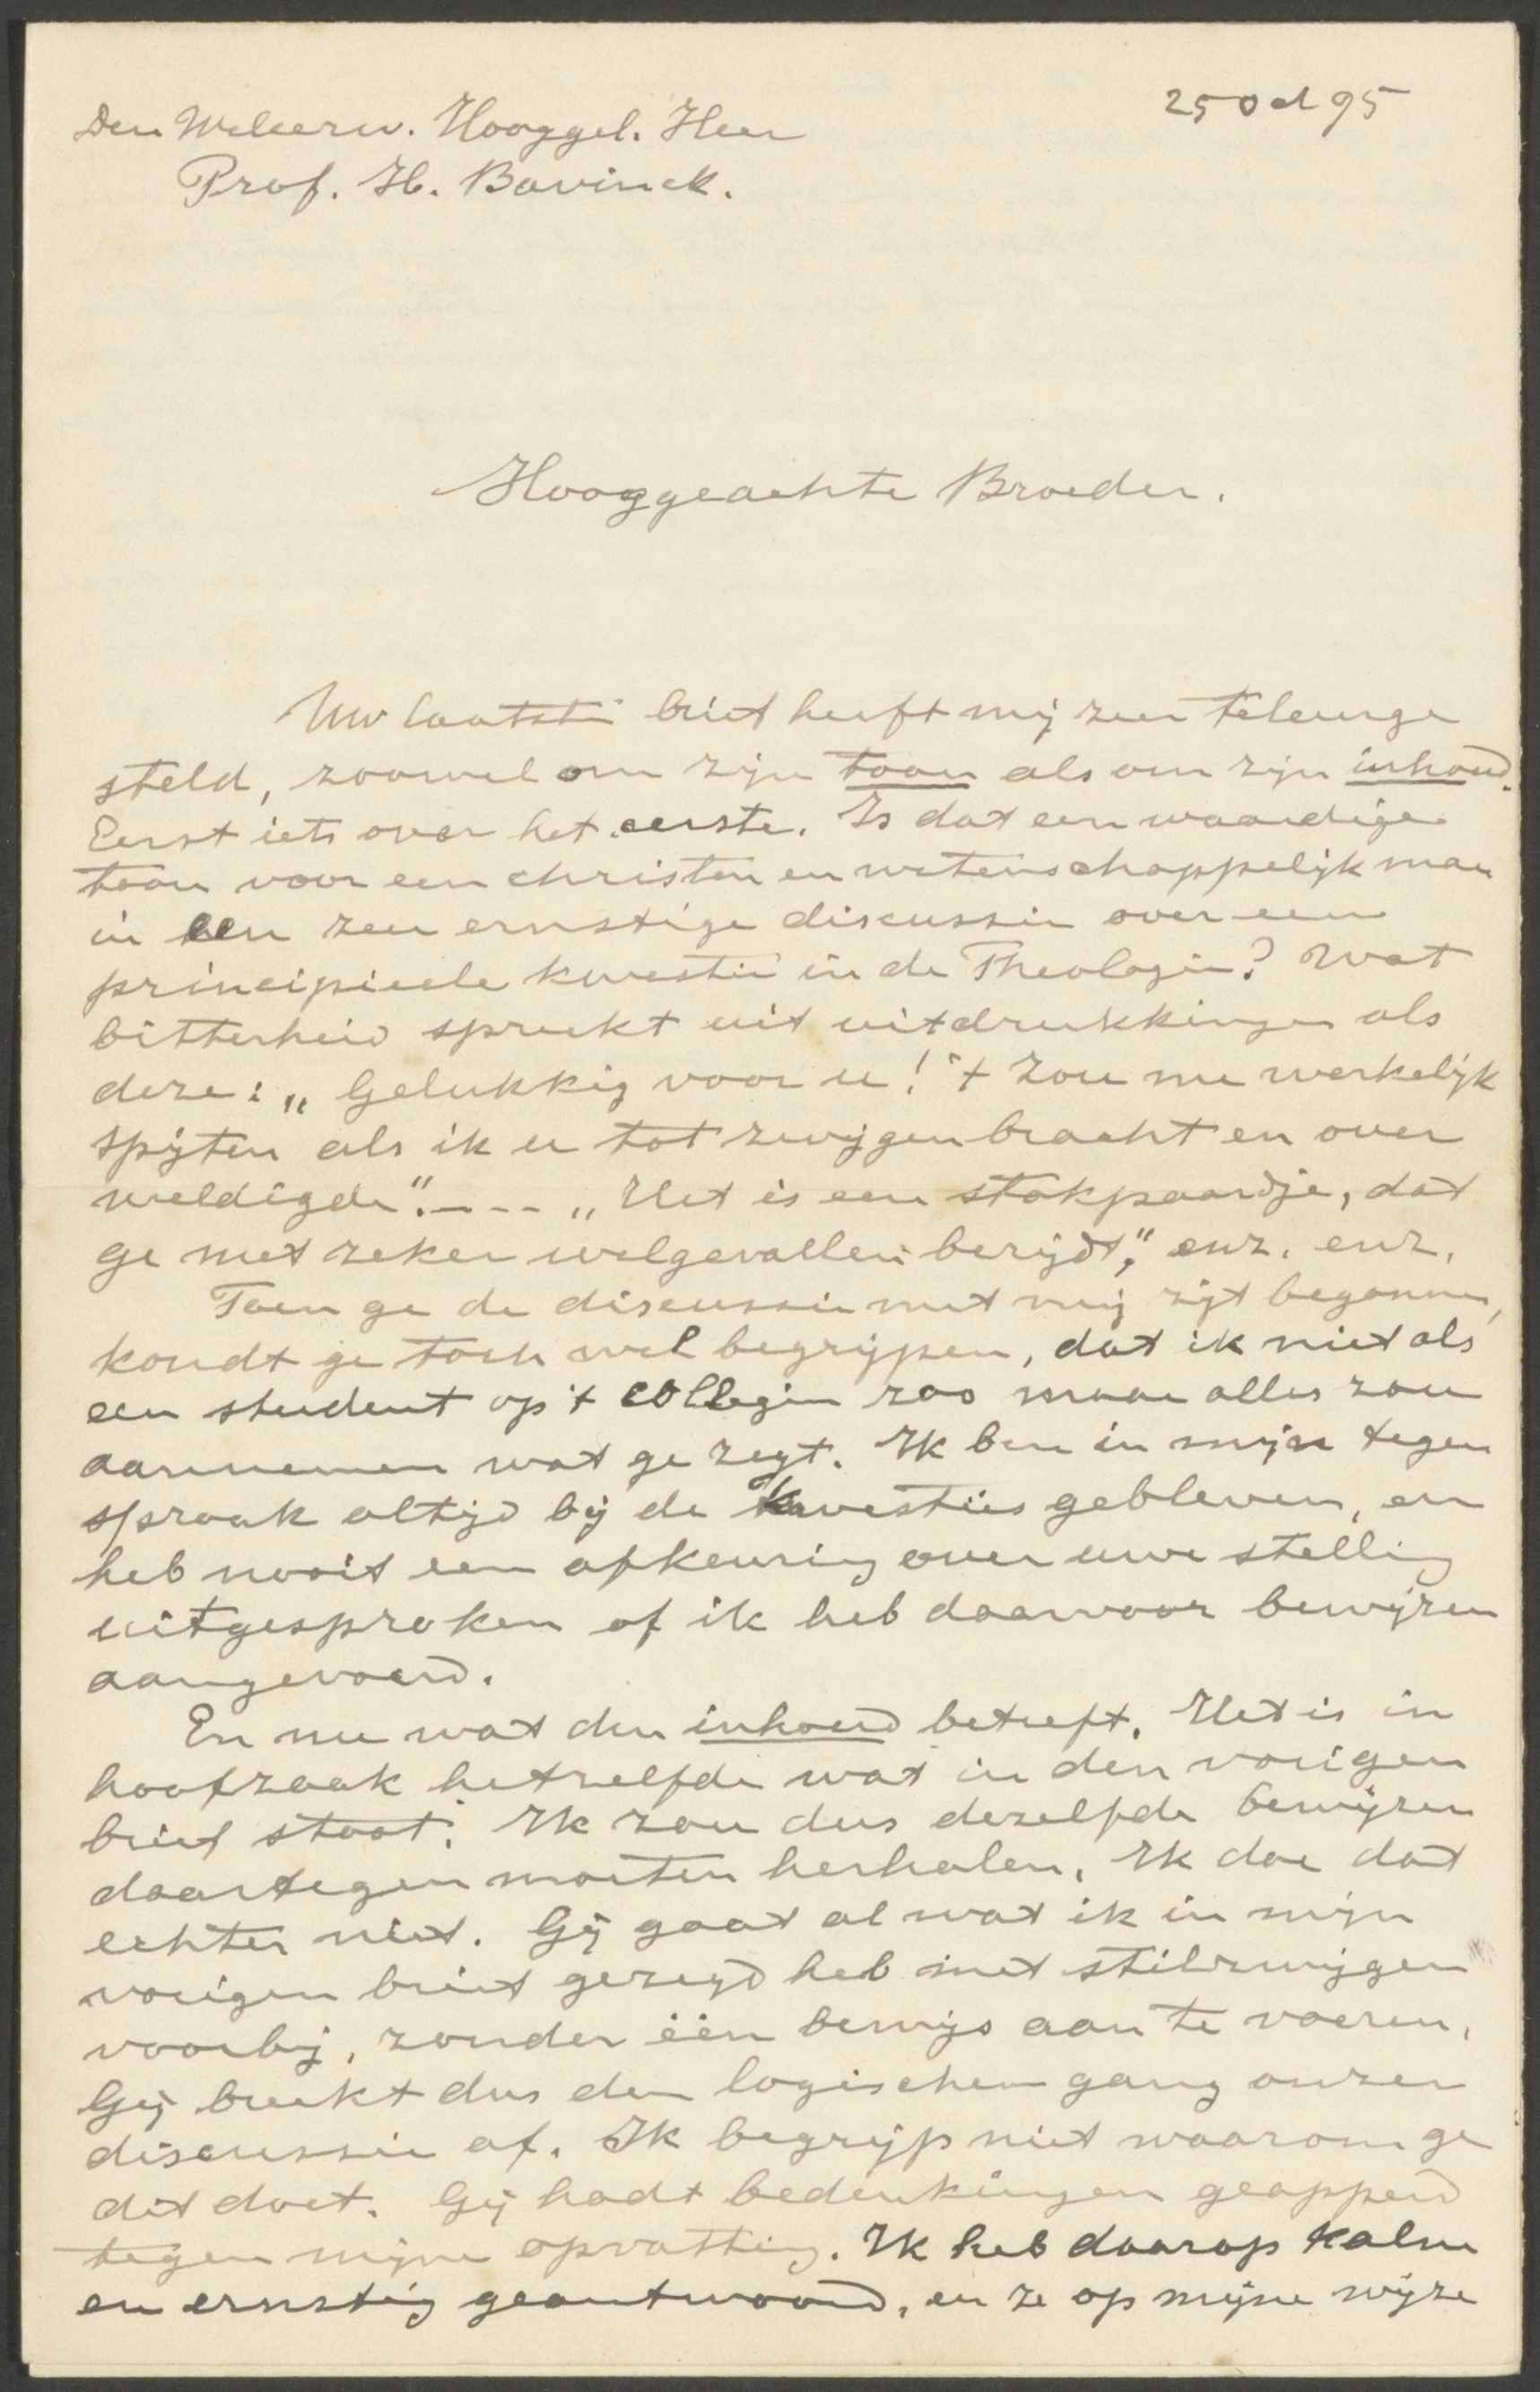 25 Oct 95
Den Weleerw. Hooggel. Heer
Prof. H. Bavinck.
Hooggeachte Broeder.
Uw laatste brief heeft mij zeer teleurge
steld, zoowel om zijn toon als om zijn inhoud.
Eerst iets over het eerste. Is dat een waardige
toon voor een christen en wetenschappelijk man
in een zeer ernstige discussie over een
principieele kwestie in de Theologie? Wat
bitterheid spreekt uit uitdrukkingen als
deze: „Gelukkig voor u! 't Zou me werkelijk
spijten als ik u tot zwijgen bracht en over
weldigde". --- „Het is een stokpaardje, dat
ge met zeker welgevallen berijdt," enz. enz.
Toen ge de discussie met mij zijt begonnen,
kondt ge toch wel begrijpen, dat ik niet als
een student op 't college zoo maar alles zou
aannemen wat ge zegt. Ik ben in mijn tegen
spraak altijd bij de kwesties gebleven, en
heb nooit een afkeuring over uwe stelling
uitgesproken of ik heb daarvoor bewijzen
aangevoerd.
En nu wat den inhoud betreft. Het is in
hoofzaak hetzelfde wat in den vorigen
brief staat. Ik zou dus dezelfde bewijzen
daartegen moeten herhalen. Ik doe dat
echter niet. Gij gaat al wat ik in mijn
vorigen brief gezegd heb met stilzwijgen
voorbij, zonder één bewijs aan te voeren.
Gij breekt dus den logischen gang onzer
discussie af. Ik begrijp niet waarom ge
dit doet. Gij hadt bedenkingen geopperd
tegen mijne opvatting. Ik heb daarop kalm
en ernstig geantwoord, en ze op mijne wijze